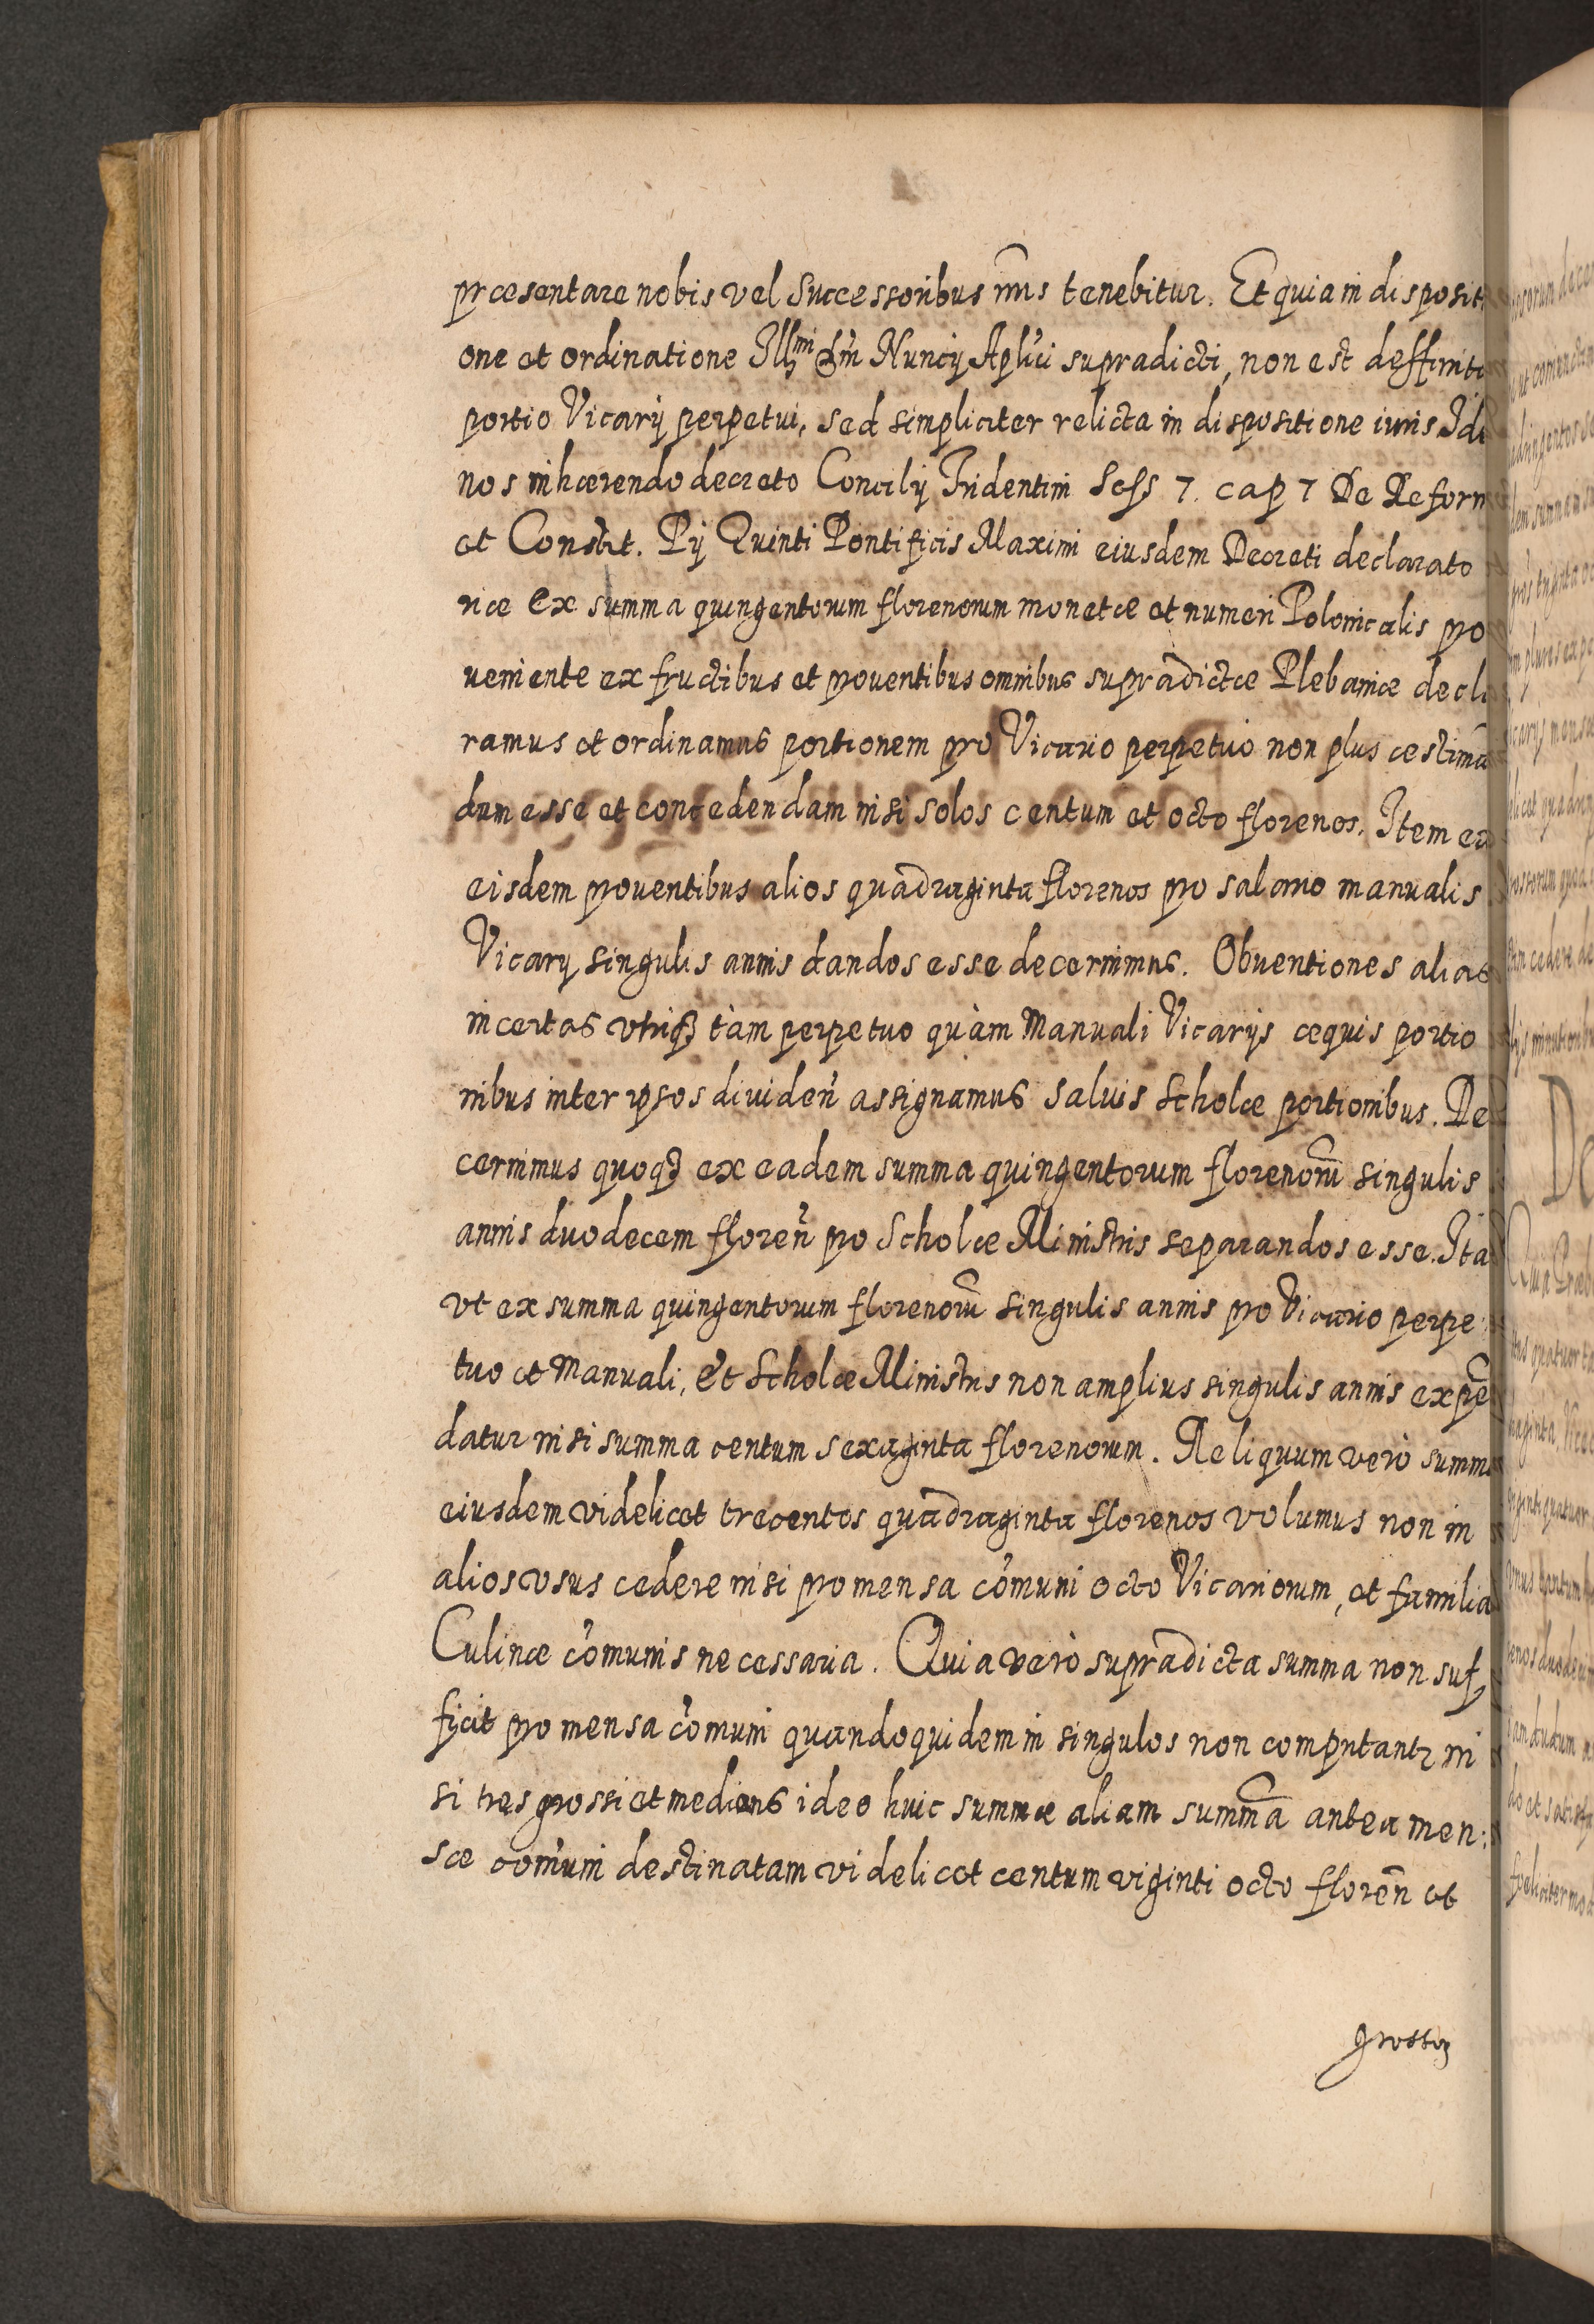 præsentare nobis vel Successoribus nr̃is tenebitur. Et quia in dispositi
one et ordinatione Illmi Dñi Nuncij Apl'ici supradicti, non est deffinita
portio Vicarij perpetui, sed simpliciter relicta in dispositione iuris Ideo
nos inhærendo decreto Concilij Tridentini Sess 7. cap 7 De Reform
et Constit. Pij Quinti Pontificis Maximi eiusdem Decreti declarato
riæ Ex summa quingentorum florenorum monetæ et numeri Polonicalis pro
ueniente ex fructibus et prouentibus omnibus supradictæ Plebaniæ decla
ramus et ordinamus portionem pro Vicario perpetuo non plus æstimã
dam esse et concedendam nisi solos centum et octo florenos. Item ex
eisdem prouentibus alios quadraginta florenos pro salario manualis
Vicarij singulis annis dandos esse decernimus. Obuentiones alias
incertas vtriq3 tàm perpetuo quàm Manuali Vicarijs æquis portio
nibus inter ipsos diuideñ assignamus saluis Scholæ portionibus. De
cernimus quoq3 ex eadem summa quingentorum florenorũ singulis
annis duodecem floreñ pro Scholæ Ministris separandos esse. Ita
vt ex summa quingentorum florenorũ singulis annis pro Vicario perpe
tuo et Manuali, Et Scholæ Ministris non amplius singulis annis expẽ
datur nisi summa centum sexaginta florenorum. Reliquum verò summæ
eiusdem videlicet trecentos quadraginta florenos volumus non in
alios vsus cedere nisi pro mensa cõmuni octo Vicariorum, et familia
Culinæ cõmunis necessaria. Quia verò supradicta summa non suf
ficit pro mensa cõmuni quandoquidem in singulos non computantr ni
si tres grossi et medians ideo huic summæ aliam summã antea men:
sæ cõmuni destinatam videlicet centum viginti octo floreñ et
grossos